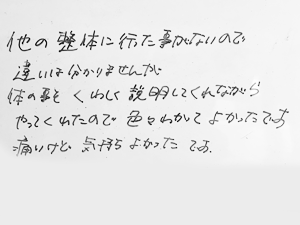 他の整体に行った事がないので
違いは分かりませんが
体の事を くわしく 説明してくれながら
やってくれたので 色々わかって よかったです
痛いけど 気持ち よかった です.